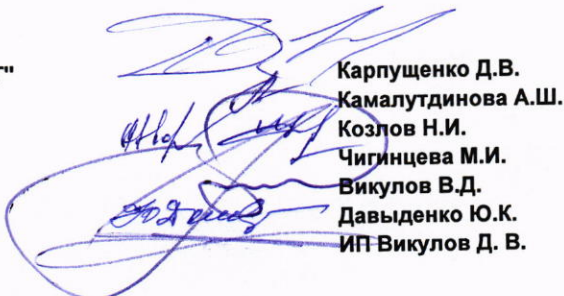 Карпущенко Д.В.
Камалутдинова А.Ш.
Козлов Н.И.
Чигинцева М.И.
Викулов В.Д.
Давыденко Ю.К.
ИП Викулов Д. В.